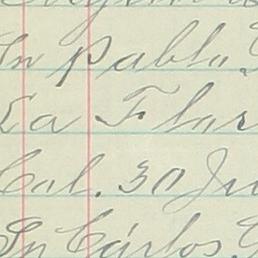 Sn Pablo
La Flor
Cal. 30 Ju
Sn Cárlos